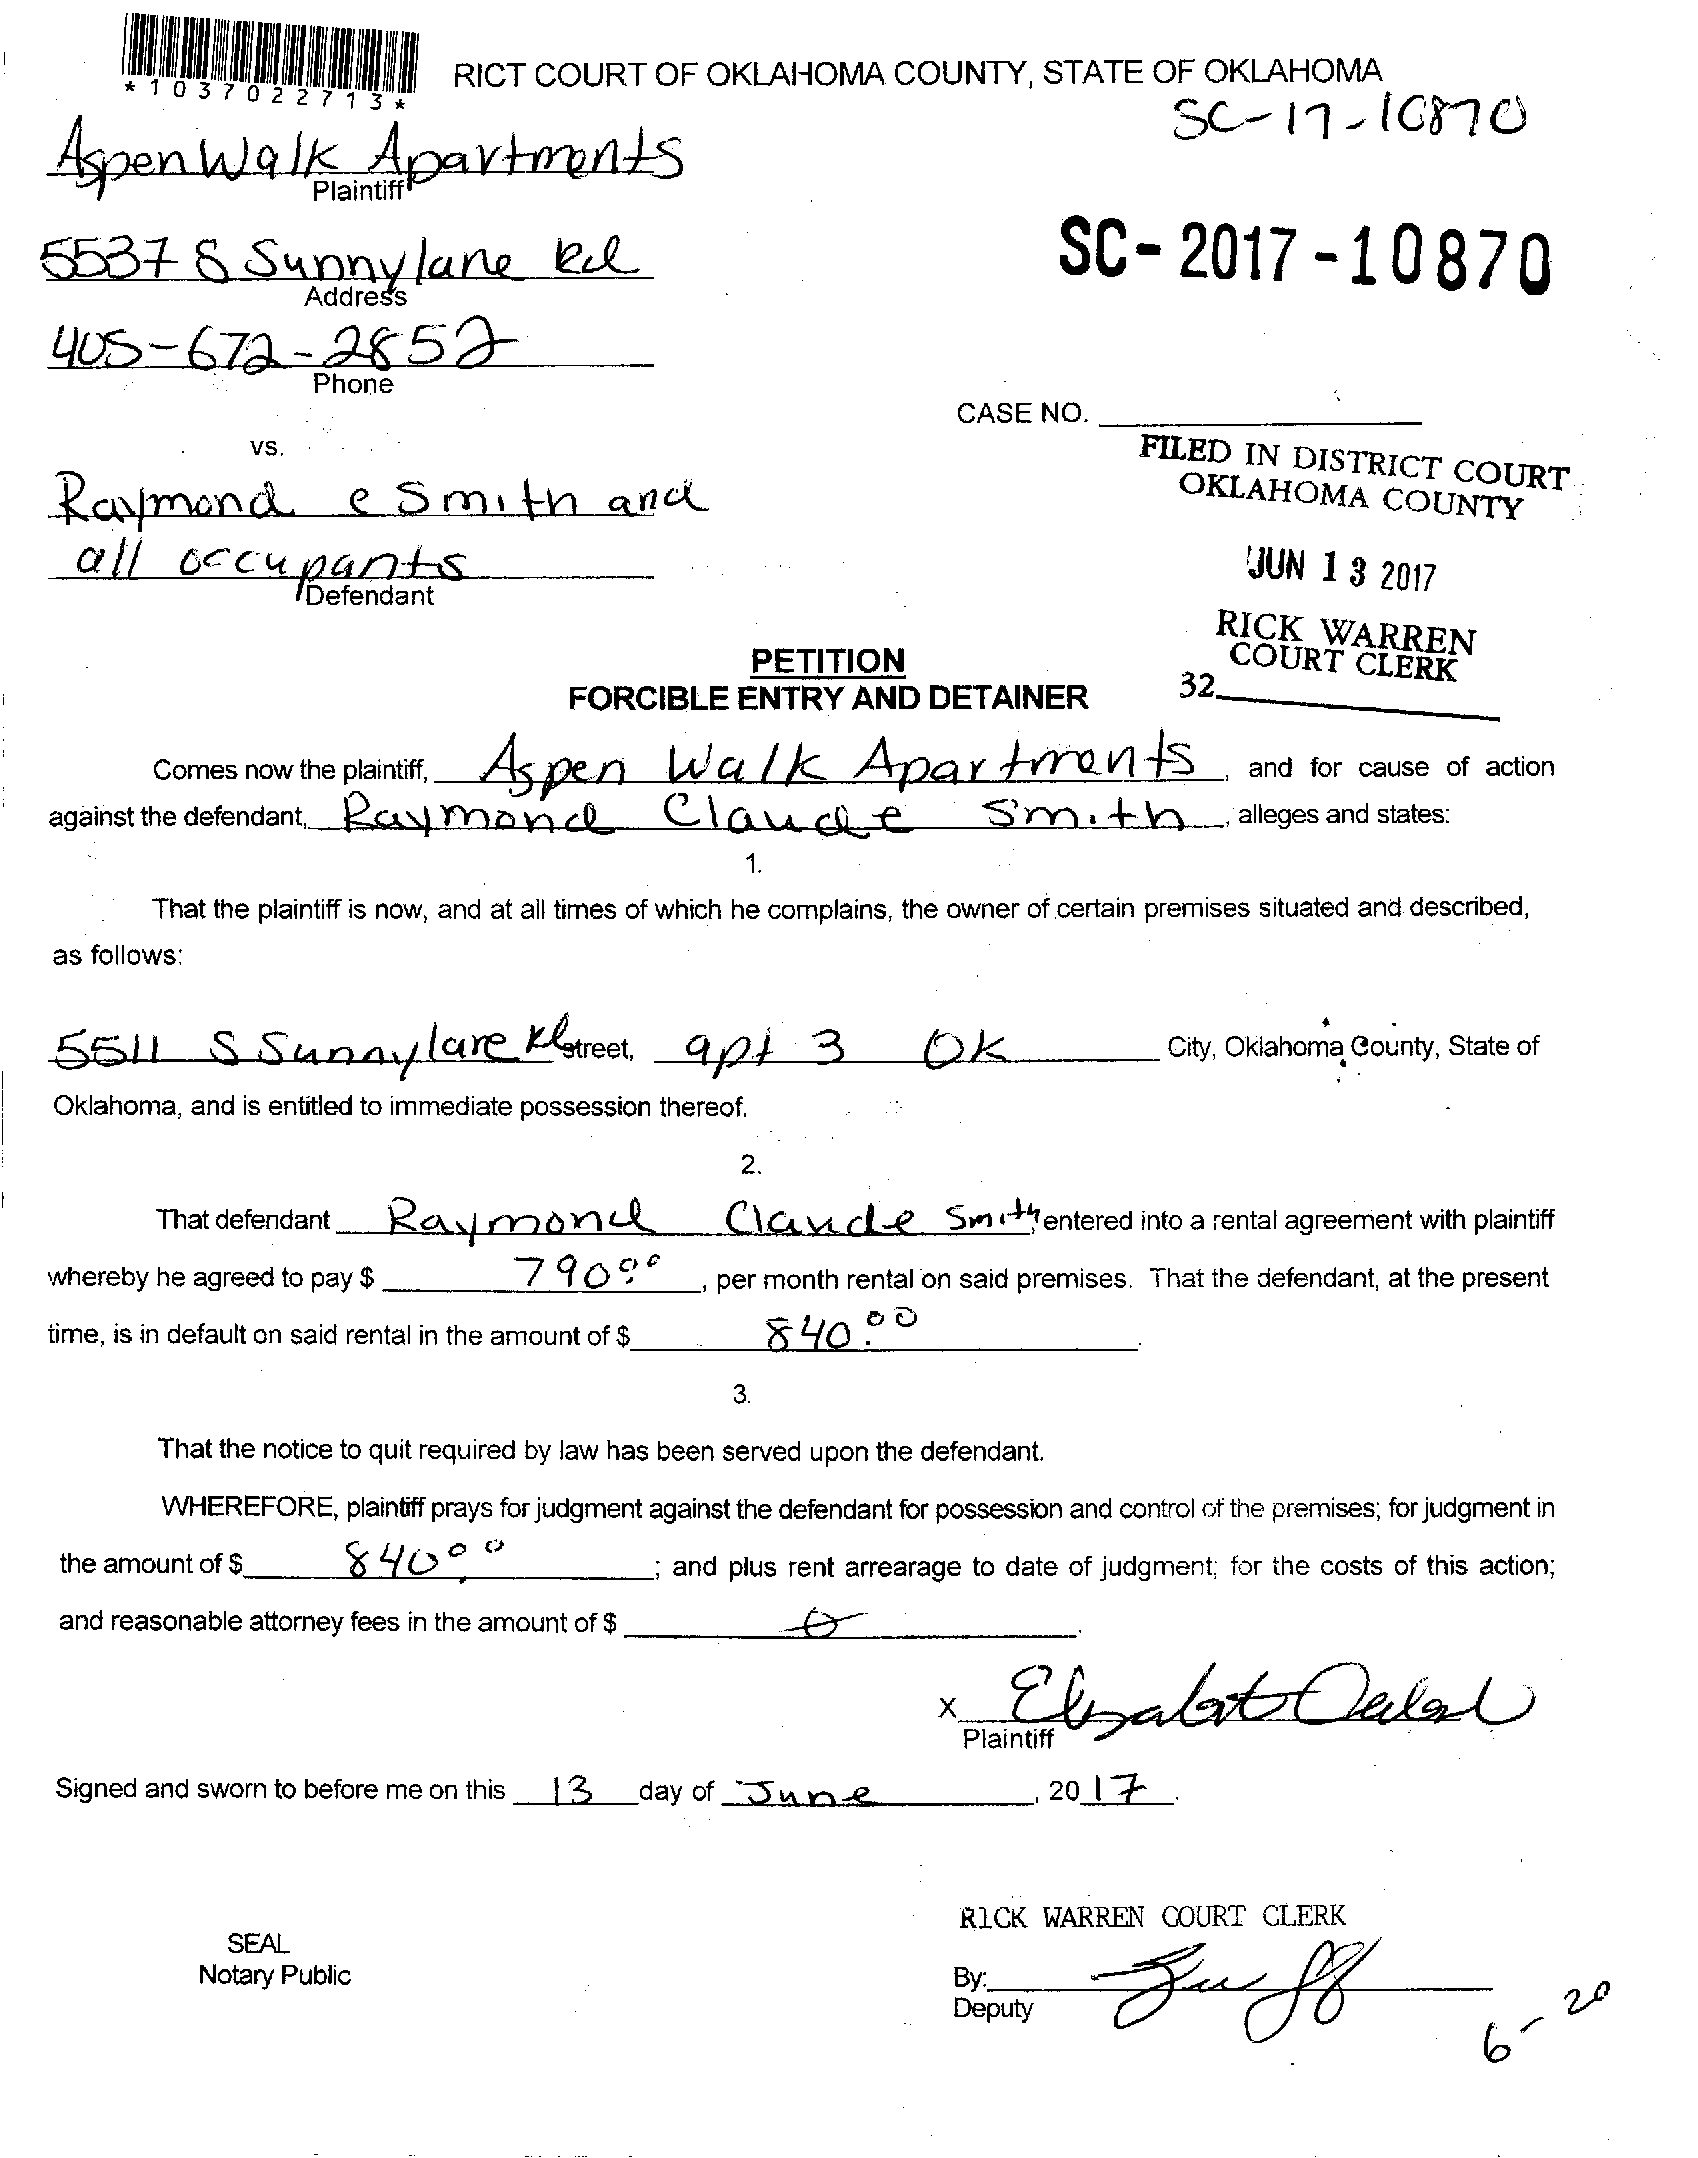 *1037022713*
RICT COURT OF OKLAHOMA COUNTY, STATE OF OKLAHOMA
SC-17-10870
Aspen Walk Apartments
Plaintiff
SC-2017-10870
5537 S Sunnylane Rd
Address
405-672-2852
Phone
CASE NO.
vs.
FILED IN DISTRICT COURT
OKLAHOMA COUNTY
Raymond c Smith and
all occupants
Defendant
JUN 13 2017
RICK WARREN
COURT CLERK
32
PETITION
FORCIBLE ENTRY AND DETAINER
Comes now the plaintiff, Aspen Walk Apartments, and for cause of action
against the defendant, Raymond Claude Smith, alleges and states:
1.
That the plaintiff is now, and at all times of which he complains, the owner of certain premises situated and described,
as follows:
5511 S Sunnylane Rd Street, apt 3 OK City, Oklahoma County, State of
Oklahoma, and is entitled to immediate possession thereof.
2.
That defendant Raymond Claude Smith entered into a rental agreement with plaintiff
whereby he agreed to pay $ 790.00, per month rental on said premises. That the defendant, at the present
time, is in default on said rental in the amount of $ 840.00.
3.
That the notice to quit required by law has been served upon the defendant.
WHEREFORE, plaintiff prays for judgment against the defendant for possession and control of the premises; for judgment in
the amount of $ 840.00; and plus rent arrearage to date of judgment; for the costs of this action;
and reasonable attorney fees in the amount of $ 0.
x Elizabeth
Plaintiff
Signed and sworn to before me on this 13 day of June, 2017.
RICK WARREN COURT CLERK
SEAL
Notary Public
By:
Deputy
6-20